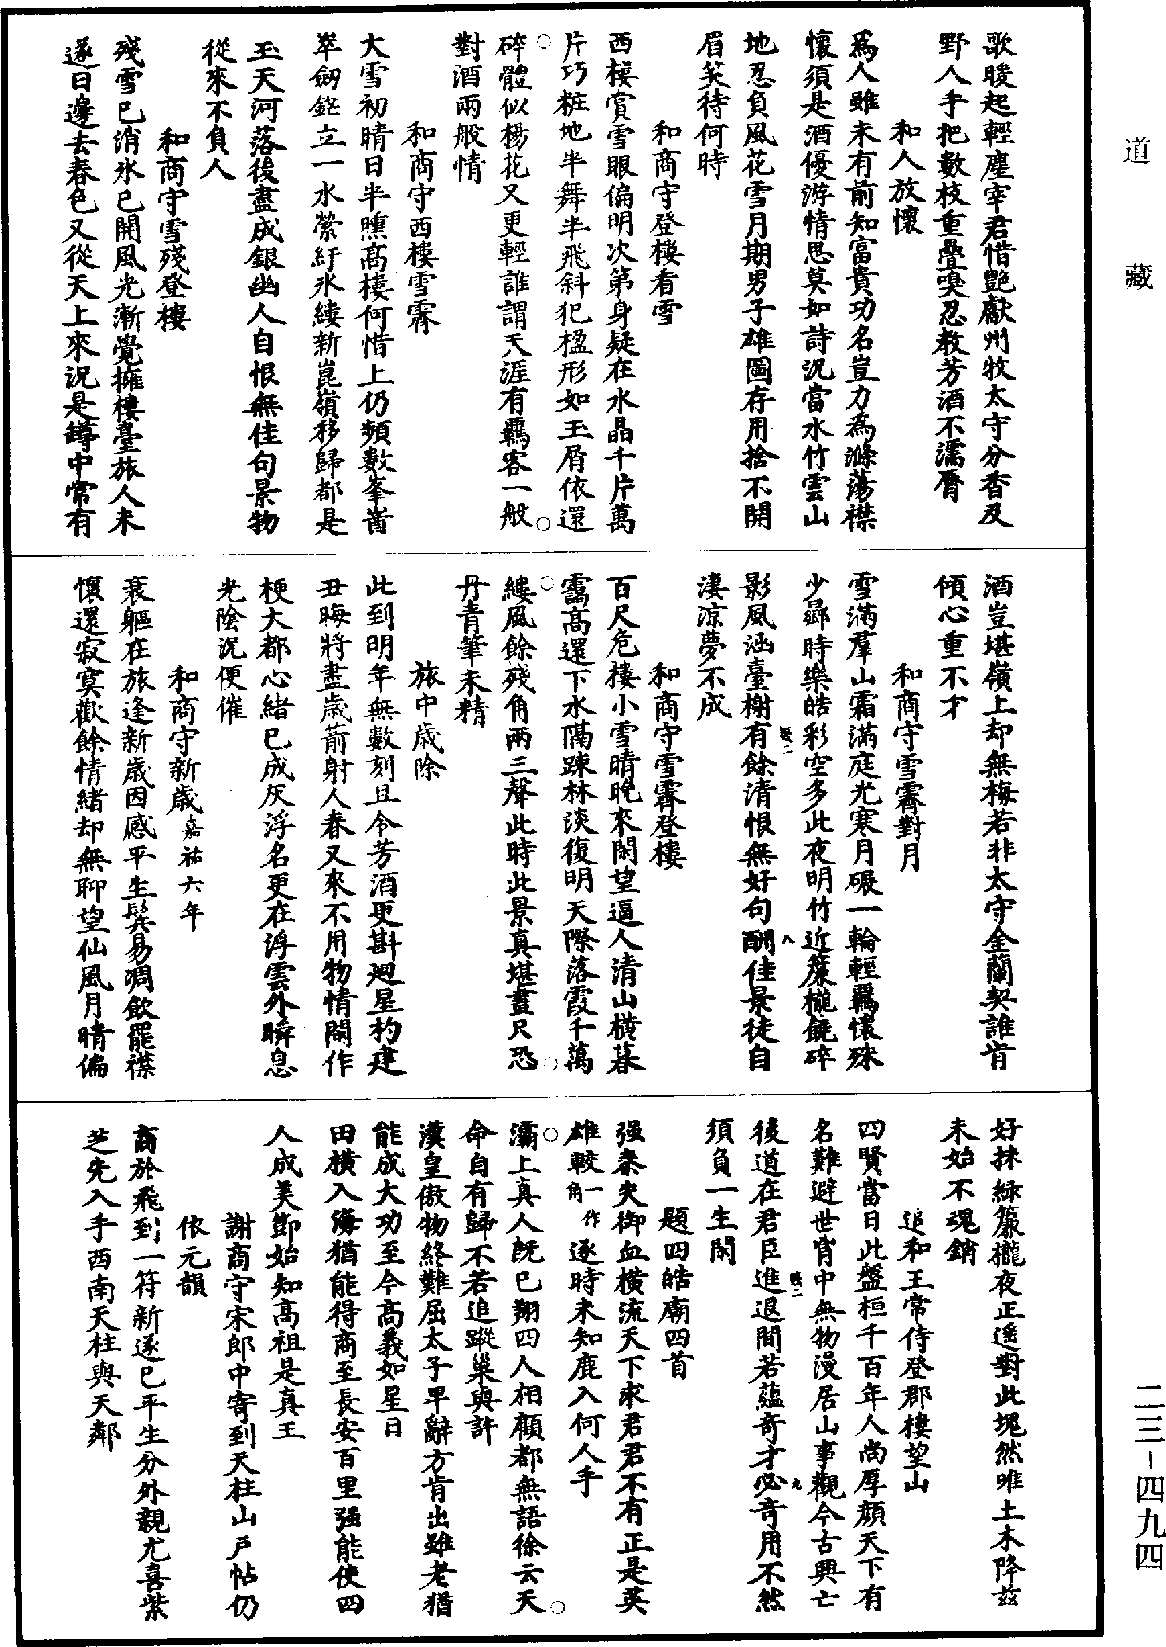 歌暖起輕塵宰君惜艷獻州牧太守分香及
野人手把數枝重疊嗅忍教芳酒不濡脣
和人放懷
爲人雖未有前知富貴功名豈力爲滌蕩襟
懷須是酒優游情思莫如詩況當水竹雲山
地忍負風花雪月期男子雄圖存用捨不開
眉笑待何時
和商守登樓看雪
西樓賞雪眼偏明次第身疑在水晶千片萬
片巧粧地半舞半飛斜犯楹形如玉屑依還
碎體似楊花又更輕誰謂天涯有羈客一般
對酒兩般情
和商守西樓雪霽
大雪初晴日半曛高樓何惜上仍頻數峯崷
崒劒鋩立一水縈紆氷縷新崑嶺移歸都是
玉天河落後盡成銀幽人自恨無佳句景物
從來不負人
和商守雪殘登樓
殘雪已消氷已開風光漸覺擁樓臺旅人未
遂日邊去春色又從天上來況是罇中常有
酒豈堪嶺上却無梅若非太守金蘭契誰肯
傾心重不才
和商守雪霽對月
雪滿羣山霜滿庭光寒月碾一輪輕羈懷殊
少尋時樂皓彩空多此夜明竹近簾櫳饒碎
影風涵臺榭有餘清恨無好句酬佳景徒自
淒涼夢不成
和商守雪霽登樓
百尺危樓小雪晴晚來閑望逼人清山橫暮
靄高還下水隔踈林淡復明天際落霞千萬
縷風餘殘角兩三聲此時此景真堪畫尺恐
丹青筆未精
旅中歲除
此到明年無數刻且令芳酒更斟迴星杓建
丑晦將盡歲箭射人春又來不用物情閑作
梗大都心緒已成灰浮名更在浮雲外瞬息
光陰況便催
和商守新歲嘉祐六年
衰軀在旅逢新歲因感平生鬓易凋飲罷襟
懷還寂寞歡餘情緒却無聊望仙風月晴偏
好抹綠簾櫳夜正遙對此塊然唯土木降兹
未始不魂銷
追和王常侍登郡樓望山
四賢當日此盤桓千百年人尚厚顏天下有
名難避世胷中無物漫居山事觀今古興亡
後道在君臣進退間若蘊奇才必奇用不然
須負一生閑
題四皓廟四首
强秦失御血橫流天下求君君不有正是英
雄較一作角逐時未知鹿入何人手
灞上真人旣已翔四人相顧都無語徐云天
命自有歸不若追蹤巢與許
漢皇傲物終難屈太子卑辭方肯出雖老猶
能成大功至今高義如星日
田橫入海猶能得商至長安百里强能使四
人成美節始知高祖是真王
謝商守宋郎中寄到天柱山戶帖仍
依元韻
商於飛到一符新遂已平生分外親尤喜紫
芝先入手西南天柱與天鄰
道藏
二三-四九四